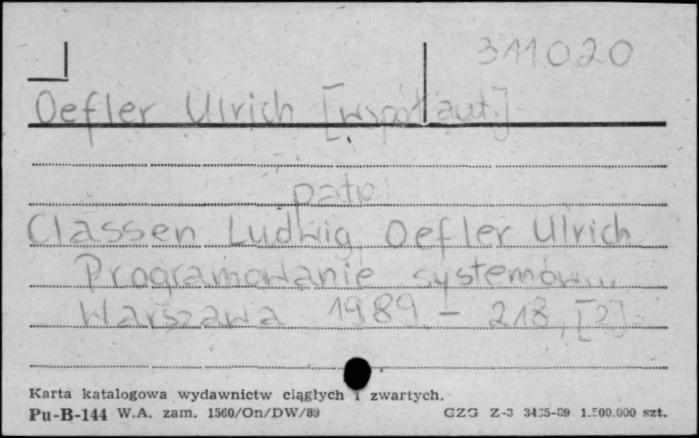 311020
Oefler Ulrich [współaut.]
patrz
Classen Ludwig, Oefler Ulrich
Programowanie systemów...
Warszawa 1989. – 218, [2] s.
Karta katalogowa wydawnictw ciągłych i zwartych.
Pu-B-144 W.A. zam. 1560/On/DW/89 GZG Z-3 3435-89 1.500.000 szt.